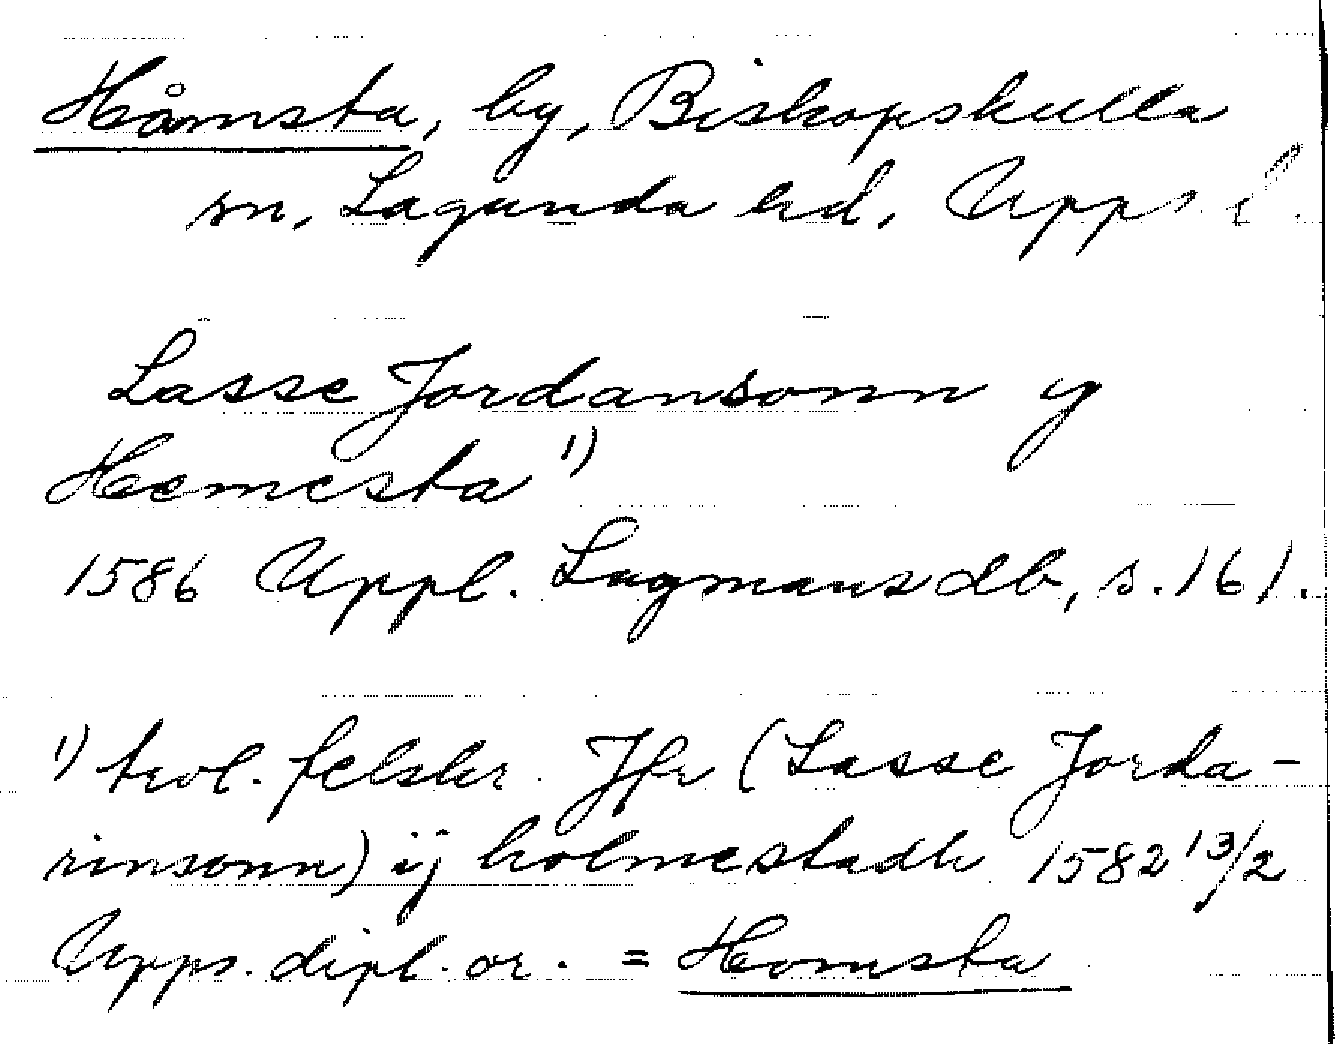 Håmsta, by, Biskopskulla
sn, Lagunda hd, Upps l.
Lasse Jordansonn y
Hemesta 1)
1586 Uppl. Lagmansdb, s. 161.
1) trol. felskr. Jfr (Lasse Jorda-
rinsonn) ij holmestadh 1582 13/2
Upps. dipl. or. = Homsta